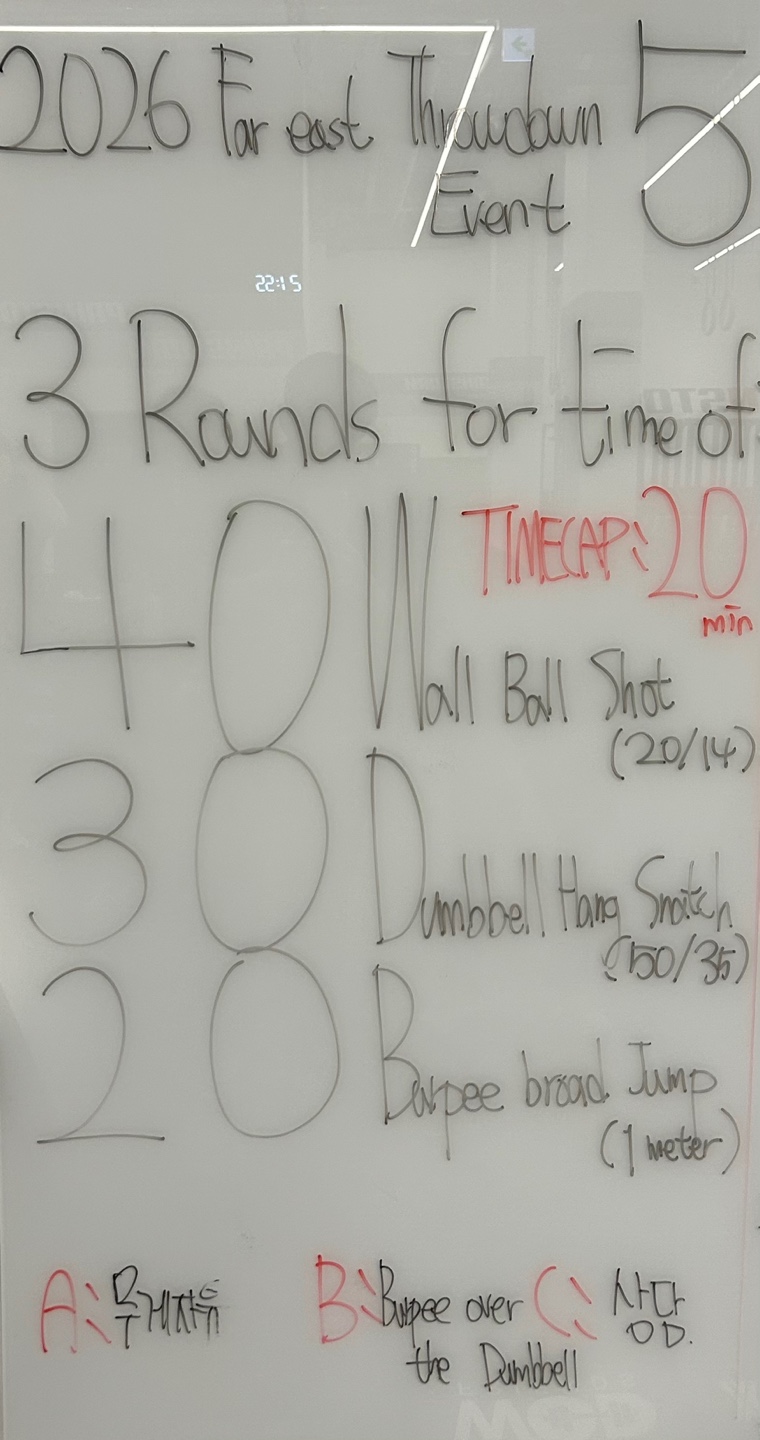 2026 Far east Throwdown 5
Event
22:15
3 Rounds for time of
TIMECAP: 20
min
40 Wall Ball Shot
(20/14)
30 Dumbbell Hang Snatch
(50/35)
20 Burpee broad Jump
(1 meter)
A: 무게자유 B: Burpee over C: 상담
the Dumbbell